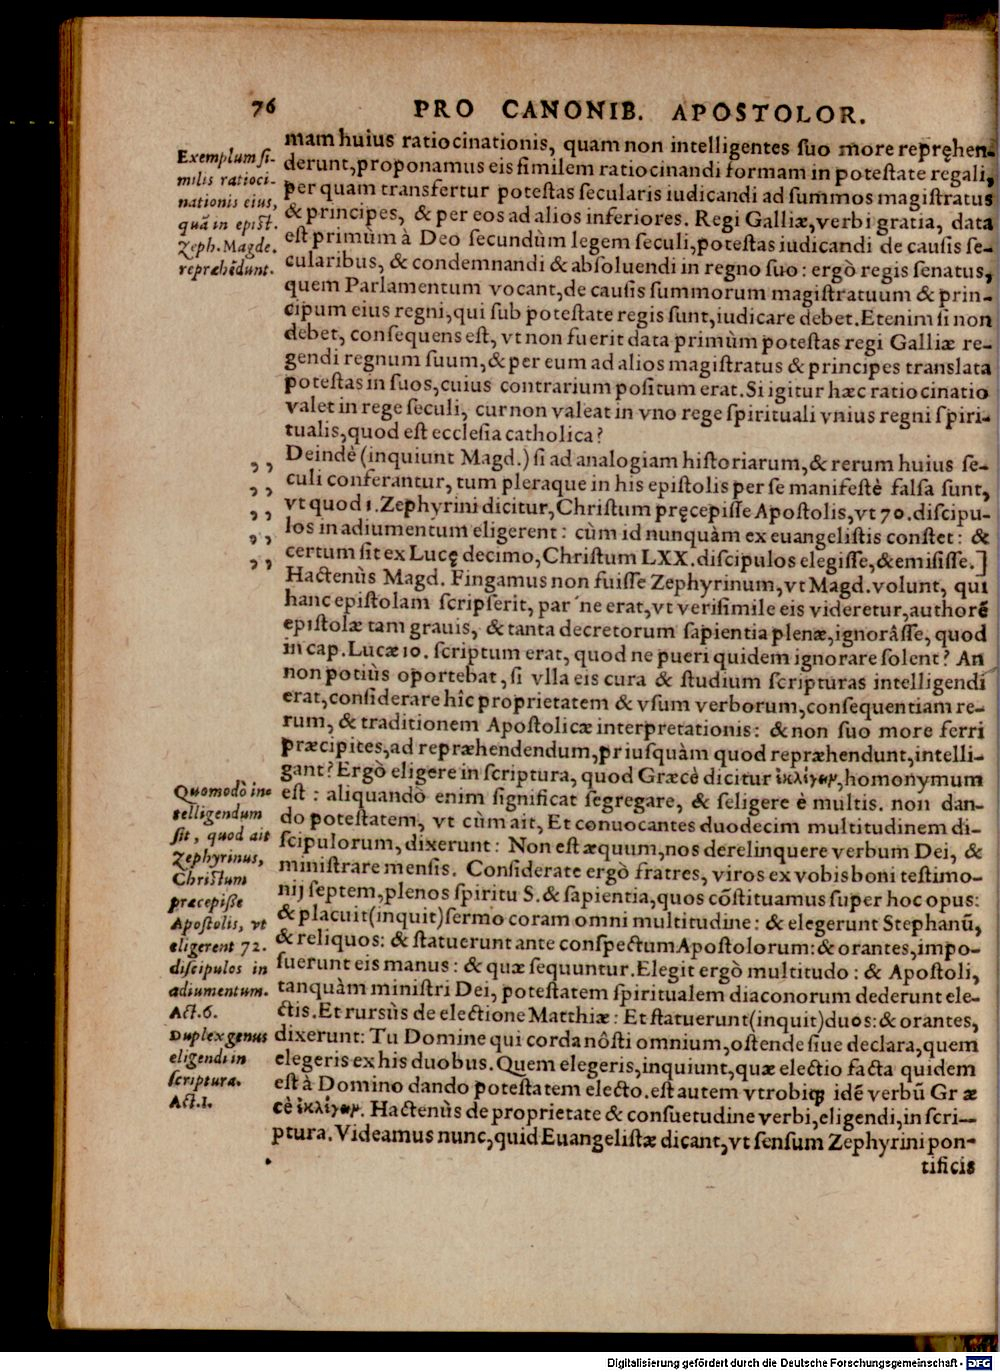 76 PRO CANONIB. APOSTOLOR.
mam huius ratiocinationis, quam non intelligentes suo more repręhen-
derunt, proponamus eis similem ratiocinandi formam in potestate regali,
per quam transfertur potestas secularis iudicandi ad summos magistratus
& principes, & per eos ad alios inferiores. Regi Galliæ, verbi gratia, data
est primùm à Deo secundùm legem seculi, potestas iudicandi de causis se-
cularibus, & condemnandi & absoluendi in regno suo: ergò regis senatus,
quem Parlamentum vocant, de causis summorum magistratuum & prin-
cipum eius regni, qui sub potestate regis sunt, iudicare debet. Etenim si non
debet, consequens est, vt non fuerit data primùm potestas regi Galliæ re-
gendi regnum suum, & per eum ad alios magistratus & principes translata
potestas in suos, cuius contrarium positum erat. Si igitur hæc ratiocinatio
valet in rege seculi, cur non valeat in vno rege spirituali vnius regni spiri-
tualis, quod est ecclesia catholica?
Exemplum si-
milis ratioci-
nationis eius,
quā in epist.
Zeph. Magde.
repræhēdunt.
Deindè (inquiunt Magd.) si ad analogiam historiarum, & rerum huius se-
,, culi conferantur, tum pleraque in his epistolis per se manifestè falsa sunt,
,, vt quod 1. Zephyrini dicitur, Christum pręcepisse Apostolis, vt 70. discipu-
,, los in adiumentum eligerent: cùm id nunquàm ex euangelistis constet: &
,, certum sit ex Lucę decimo, Christum LXX. discipulos elegisse, & emisisse.]
,, Hactenùs Magd. Fingamus non fuisse Zephyrinum, vt Magd. volunt, qui
hanc epistolam scripserit, par 'ne erat, vt verisimile eis videretur, authorē
epistolæ tam grauis, & tanta decretorum sapientia plenæ, ignorâsse, quod
in cap. Lucæ 10. scriptum erat, quod ne pueri quidem ignorare solent? An
non potiùs oportebat, si vlla eis cura & studium scripturas intelligendi
erat, considerare hîc proprietatem & vsum verborum, consequentiam re-
rum, & traditionem Apostolicæ interpretationis: & non suo more ferri
præcipites, ad repræhendendum, priusquàm quod repræhendunt, intelli-
gant? Ergò eligere in scriptura, quod Græcè dicitur ἐκλέγειν, homonymum
est: aliquandò enim significat segregare, & seligere è multis. non dan-
do potestatem, vt cùm ait, Et conuocantes duodecim multitudinem di-
scipulorum, dixerunt: Non est æquum, nos derelinquere verbum Dei, &
ministrare mensis. Considerate ergò fratres, viros ex vobis boni testimo-
nij septem, plenos spiritu S. & sapientia, quos cōstituamus super hoc opus:
& placuit (inquit) sermo coram omni multitudine: & elegerunt Stephanū,
& reliquos: & statuerunt ante conspectum Apostolorum: & orantes, impo-
suerunt eis manus: & quæ sequuntur. Elegit ergò multitudo: & Apostoli,
tanquàm ministri Dei, potestatem spiritualem diaconorum dederunt ele-
ctis. Et rursùs de electione Matthiæ: Et statuerunt (inquit) duos: & orantes,
dixerunt: Tu Domine qui corda nôsti omnium, ostende siue declara, quem
elegeris ex his duobus. Quem elegeris, inquiunt, quæ electio facta quidem
est à Domino dando potestatem electo. est autem vtrobiq; idē verbū Græ
cè ἐκλέγειν. Hactenùs de proprietate & consuetudine verbi, eligendi, in scri-
ptura. Videamus nunc, quid Euangelistæ dicant, vt sensum Zephyrini pon-
tificis
Quomodò in-
telligendum
sit, quod ait
Zephyrinus,
Christum
præcepisse
Apostolis, vt
eligerent 72.
discipulos in
adiumentum.
Act. 6.
Duplex genus
eligendi in
scriptura.
Act. 1.
Digitalisierung gefördert durch die Deutsche Forschungsgemeinschaft - DFG